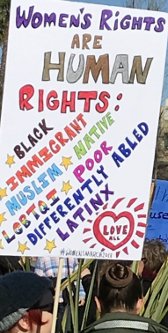 WOMEN'S RIGHTS
ARE
HUMAN
RIGHTS:
BLACK
IMMIGRANT
MUSLIM NATIVE
LGBTQI POOR
DIFFERENTLY ABLED
LATINX
LOVE
ALL
#WOMENSMARCH2018
use